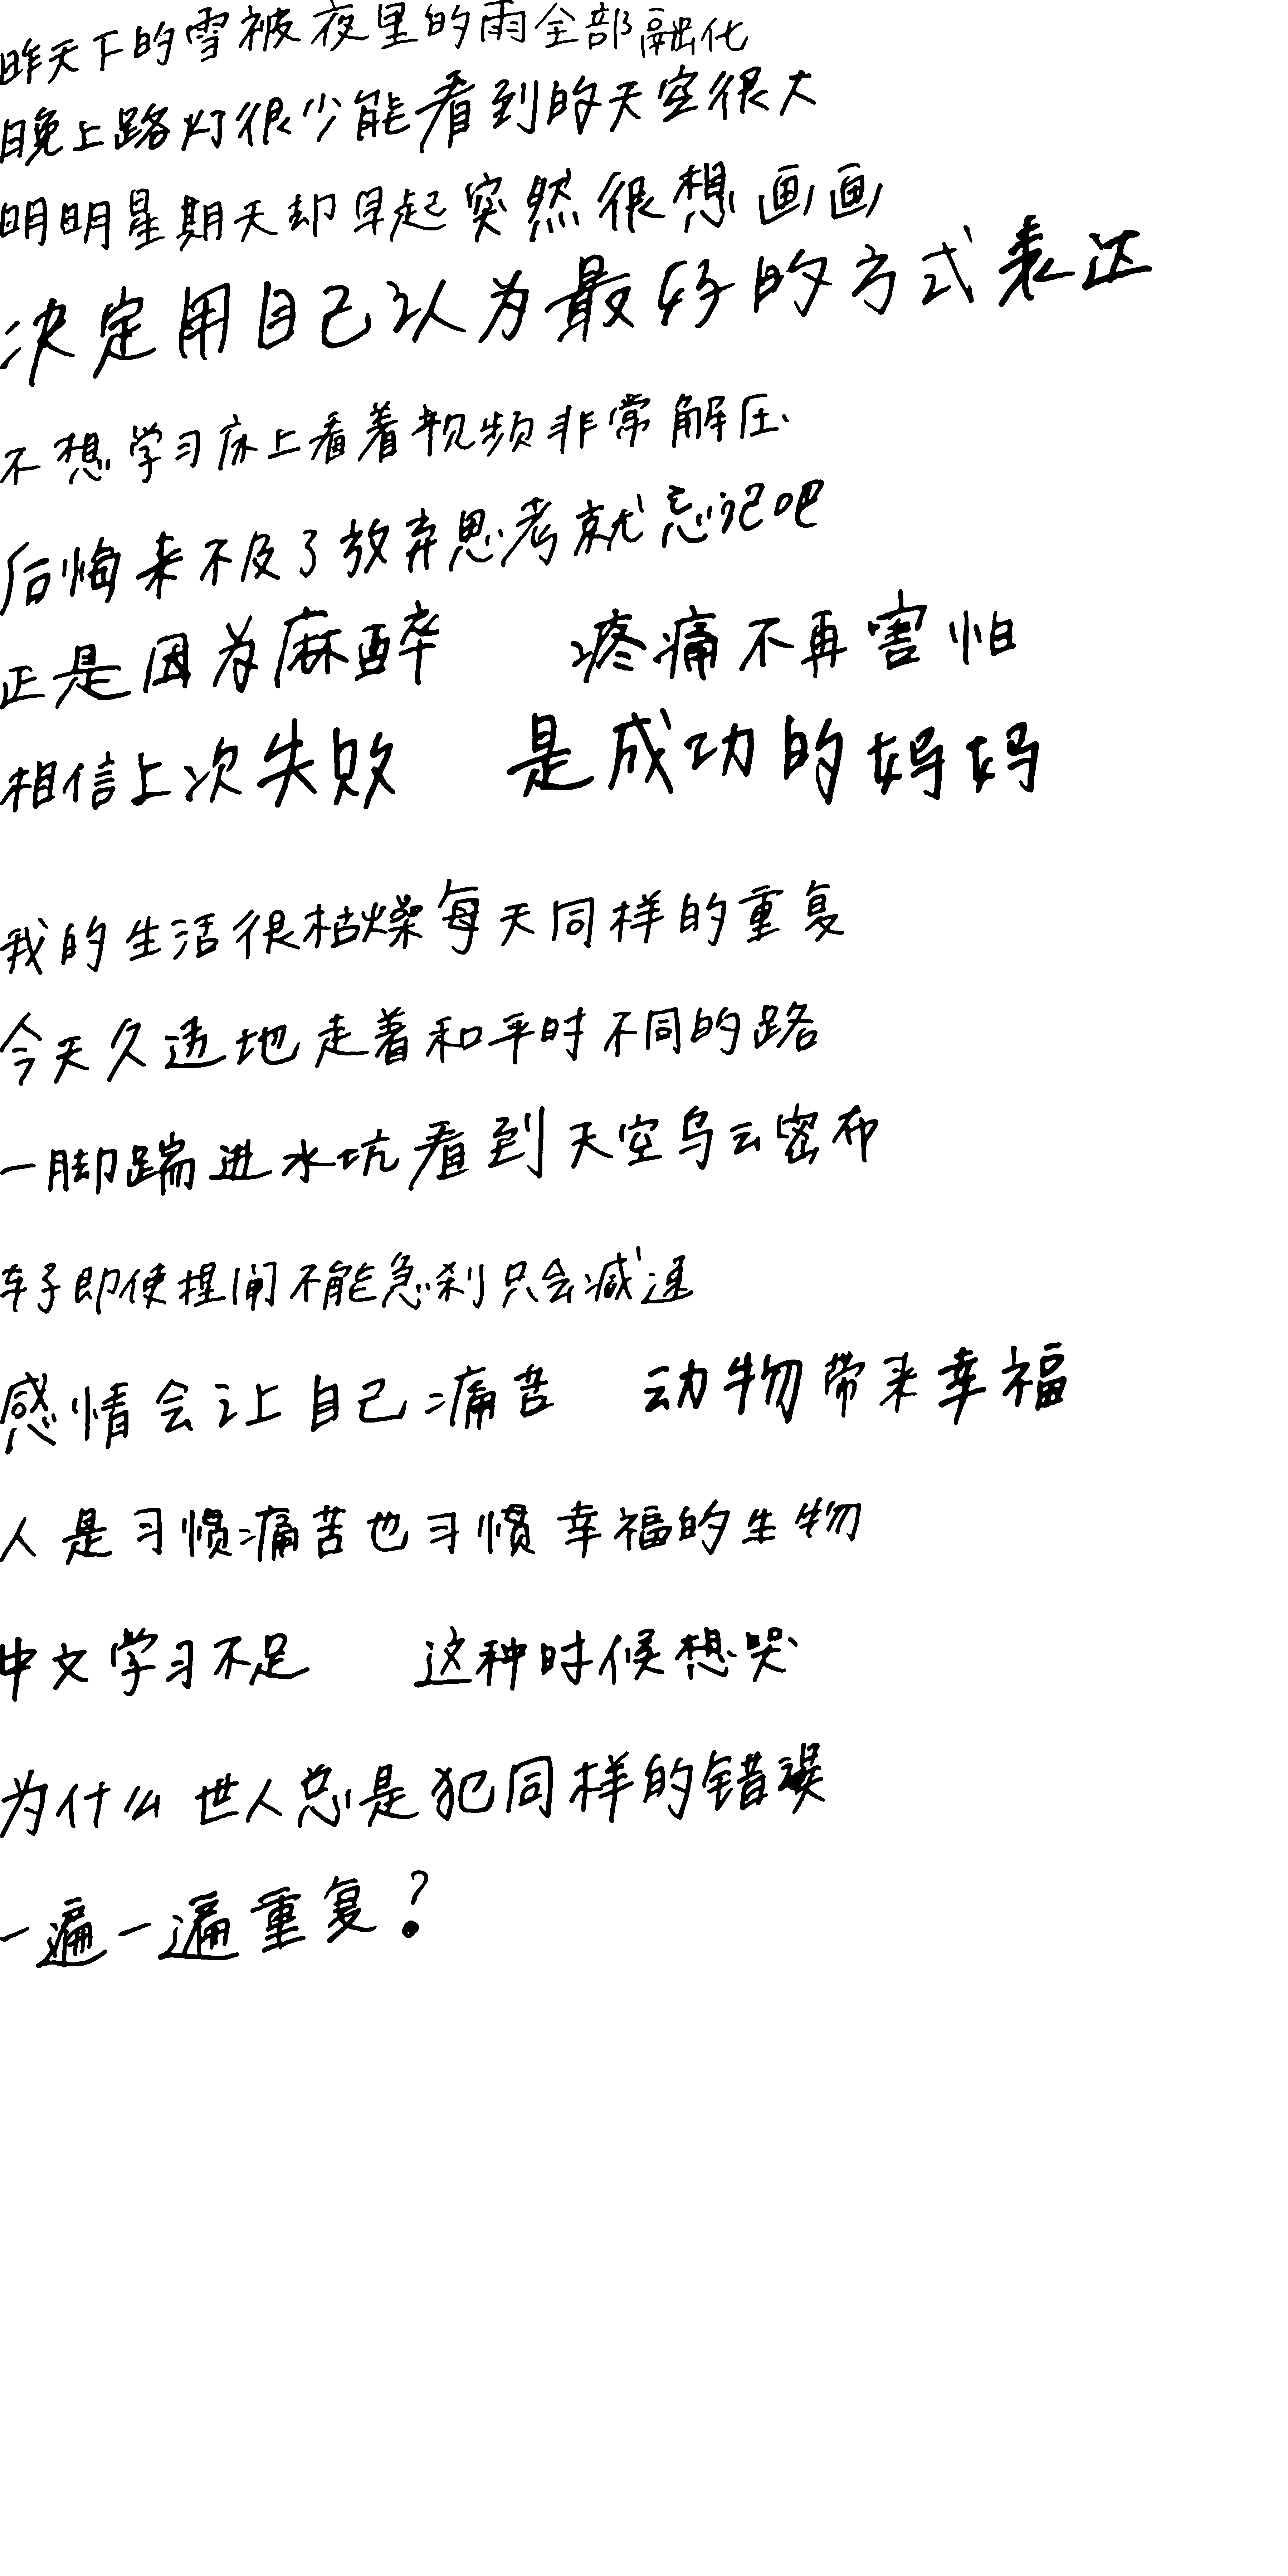 昨天下的雪被夜里的雨全部融化
晚上路灯很少能看到的天空很大
明明星期天却早起突然很想画画
决定用自己以为最好的方式表达
不想学习床上看着视频非常解压
后悔来不及了放弃思考就忘记吧
正是因为麻醉 疼痛不再害怕
相信上次失败 是成功的妈妈
我的生活很枯燥每天同样的重复
今天久违地走着和平时不同的路
一脚踹进水坑看到天空乌云密布
车子即使捏闸不能急刹只会减速
感情会让自己痛苦 动物带来幸福
人是习惯痛苦也习惯幸福的生物
中文学习不足 这种时候想哭
为什么世人总是犯同样的错误
一遍一遍重复?